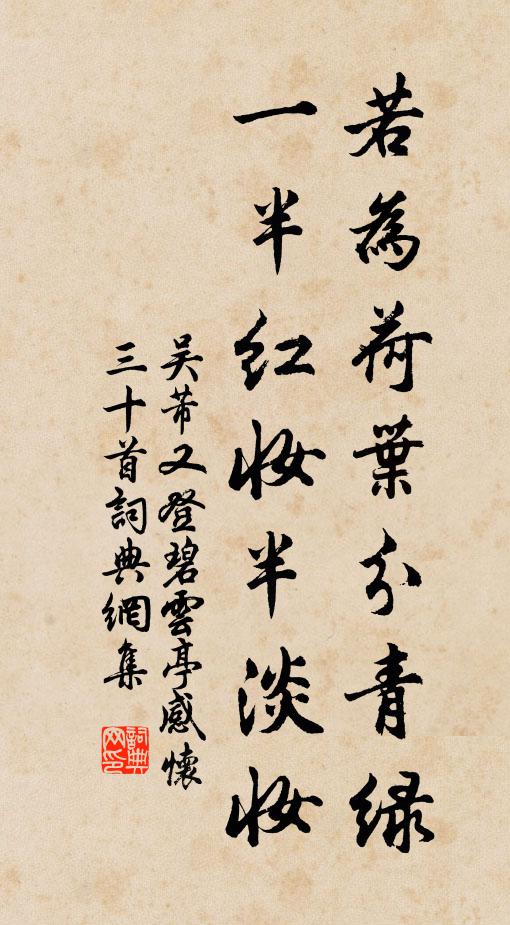 若為荷葉分青緑
一半红妝半淡妝
吴芾又登碧雲亭感懷
三十首詞典網集
詞典
网印